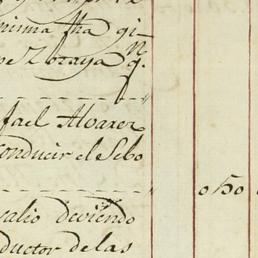 nima fha gi
de Zoraya
fael Alvarez
conducir el Sebo
o50
valio deviendo
ductor de las